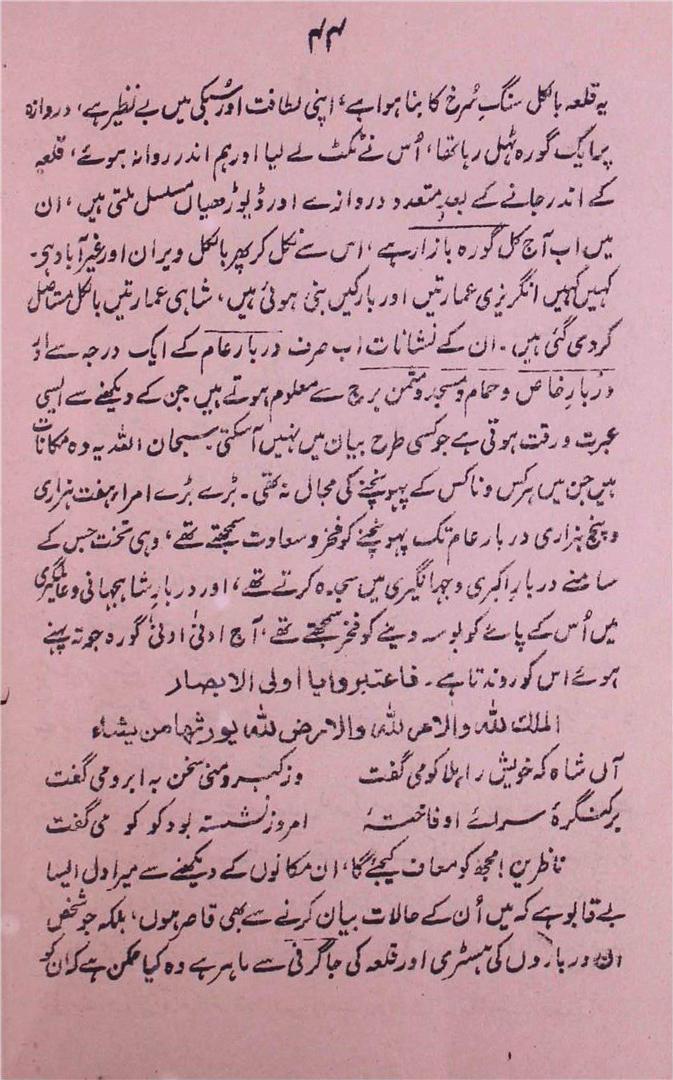 ۴۴
یہ قلعہ بالکل سنگِ سُرخ کا بنا ہوا ہے، اپنی لطافت اور سُبکی میں بے نظیر ہے، دروازہ
پر ایک گورہ ٹہل رہا تھا، اُس نے ٹکٹ لے لیا اور ہم اندر روانہ ہوئے، قلعہ
کے اندر جانے کے بعد متعدد دروازے اور ڈیوڑھیاں مسلسل ملتی ہیں، ان
میں اب آج کل گورہ بازار ہے، اس سے نکل کر پھر بالکل ویران اور غیر آباد ہو۔
کہیں کہیں انگریزی عمارتیں اور بارکیں بنی ہوئی ہیں، شاہی عمارتیں بالکل مستاصل
کردی گئی ہیں۔ ان کے نشانات اب صرف دربار عام کے ایک درجہ سے اور
دربارِ خاص و حمام و مسجد و مثمن برج سے معلوم ہوتے ہیں جن کے دیکھنے سے ایسی
عبرت و رقت ہوتی ہے جو کسی طرح بیان میں نہیں آسکتی۔ سبحان اللہ یہ وہ مکانات
ہیں جن میں ہر کس و ناکس کے پہونچنے کی مجال نہ تھی۔ بڑے بڑے امراء ہفت ہزاری
و پنج ہزاری دربار عام تک پہونچنے کو فخر و سعادت سمجھتے تھے، وہی تخت جس کے
سامنے دربارِ اکبری و جہانگیری میں سجدہ کرتے تھے، اور دربار شاہجہانی و عالمگیری
میں اُس کے پائے کو بوسہ دینے کو فخر سمجھتے تھے، آج ادنیٰ ادنیٰ گورہ جوتہ پہنے
ہوئے اس کو روندتا ہے۔ فاعتبروا یا اولی الابصار
الملک للہ والامر للہ والارض للہ یورثھا من یشاء
آں شاہ کہ خویش را ہلاکو می گفت وز کبر و منی سخن بہ ابرو می گفت
بر کنگرۂ سرائے او فاختۂ امروز نشستہ بود کو کو می گفت
ناظرین! مجھ کو معاف کیجئے گا، ان مکانوں کے دیکھنے سے میرا دل ایسا
بے قابو ہے کہ میں اُن کے حالات بیان کرنے سے بھی قاصر ہوں، بلکہ جو شخص
ان درباروں کی ہسٹری اور قلعہ کی جاگرفی سے ماہر ہے وہ کیا ممکن ہے کہ ان کو